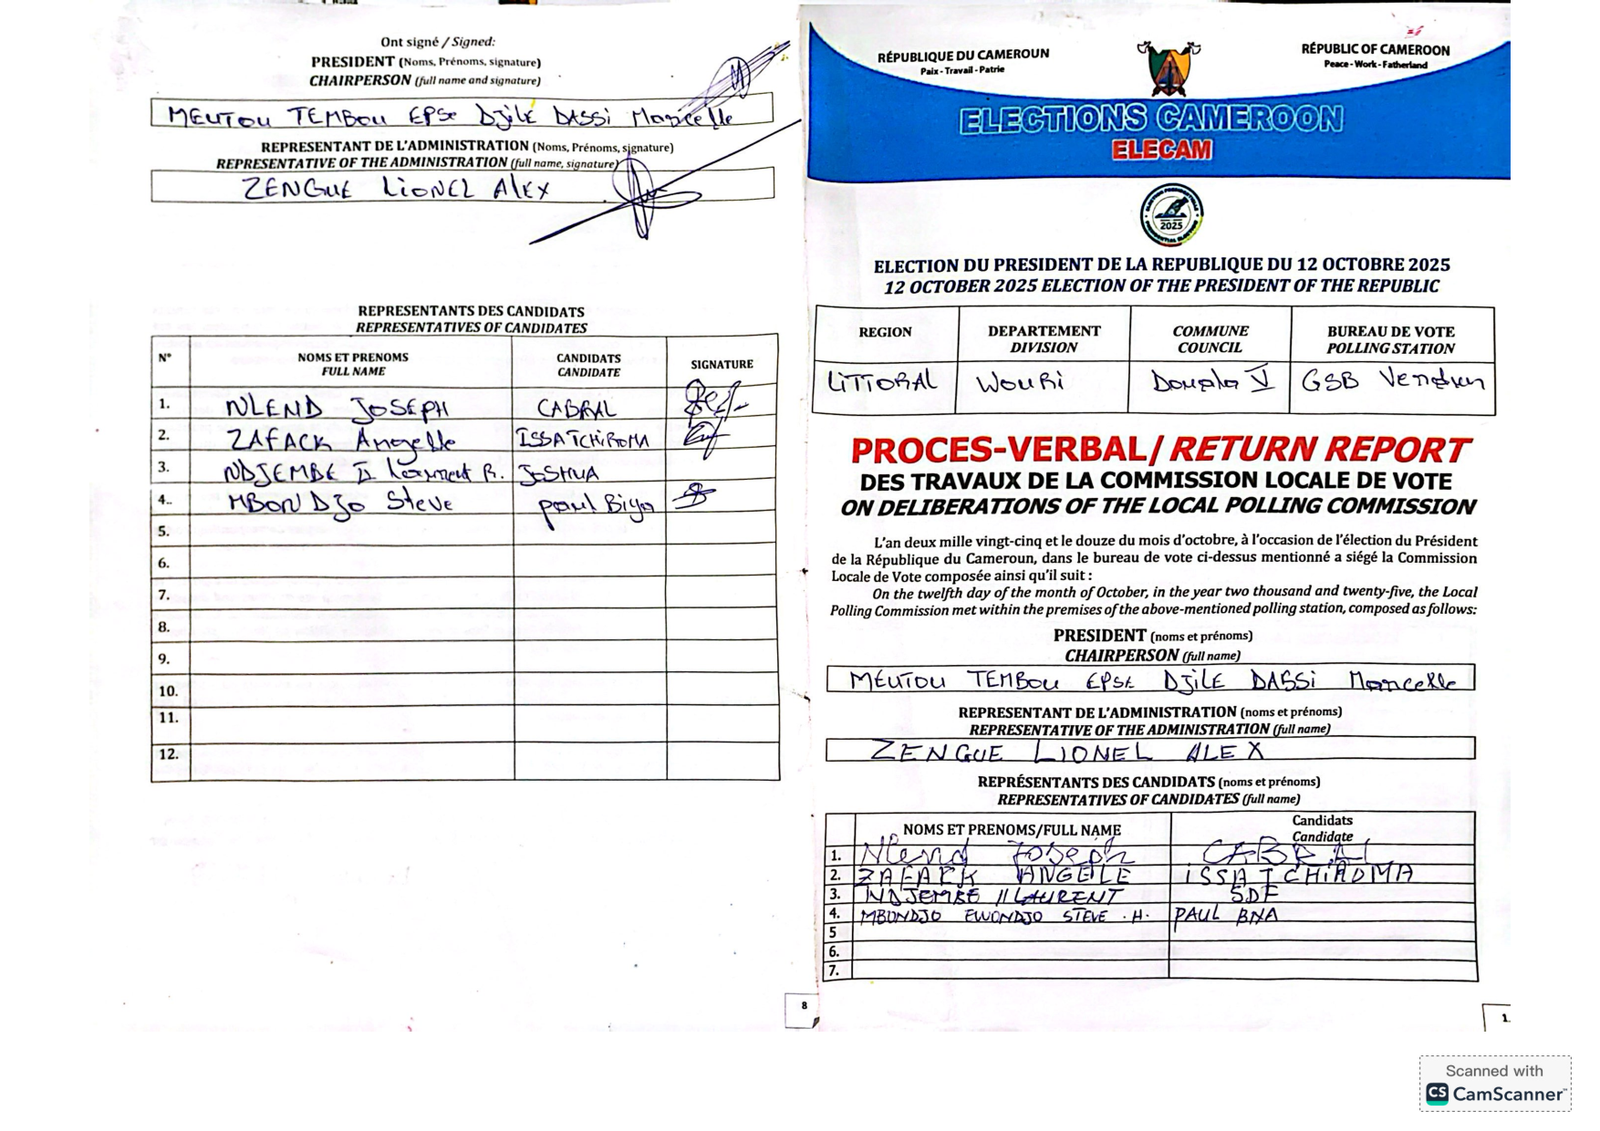 Ont signé / Signed:
PRESIDENT (Noms, Prénoms, signature)
CHAIRPERSON (full name and signature)
MEUTOU TEMBOU EPSE DJILÉ DASSI Marcelle
REPRESENTANT DE L'ADMINISTRATION (Noms, Prénoms, signature)
REPRESENTATIVE OF THE ADMINISTRATION (full name, signature)
ZENGUE LIONEL ALEX
REPRESENTANTS DES CANDIDATS
REPRESENTATIVES OF CANDIDATES
N° NOMS ET PRENOMS CANDIDATS SIGNATURE
FULL NAME CANDIDATE
1. NLEND JOSEPH CABRAL
2. ZAFACK Angelle ISSA TCHIROMA
3. NDJEMBE II Laurent R. JOSHUA
4. MBONDJO Steve paul Biya
5.
6.
7.
8.
9.
10.
11.
12.
8
RÉPUBLIQUE DU CAMEROUN
Paix - Travail - Patrie
RÉPUBLIC OF CAMEROON
Peace - Work - Fatherland
ELECTIONS CAMEROON
ELECAM
2025
ELECTION DU PRESIDENT DE LA REPUBLIQUE DU 12 OCTOBRE 2025
12 OCTOBER 2025 ELECTION OF THE PRESIDENT OF THE REPUBLIC
REGION DEPARTEMENT COMMUNE BUREAU DE VOTE
DIVISION COUNCIL POLLING STATION
LITTORAL WOURI Douala V GSB Verdun
PROCES-VERBAL/ RETURN REPORT
DES TRAVAUX DE LA COMMISSION LOCALE DE VOTE
ON DELIBERATIONS OF THE LOCAL POLLING COMMISSION
L'an deux mille vingt-cinq et le douze du mois d'octobre, à l'occasion de l'élection du Président
de la République du Cameroun, dans le bureau de vote ci-dessus mentionné a siégé la Commission
Locale de Vote composée ainsi qu'il suit :
On the twelfth day of the month of October, in the year two thousand and twenty-five, the Local
Polling Commission met within the premises of the above-mentioned polling station, composed as follows:
PRESIDENT (noms et prénoms)
CHAIRPERSON (full name)
MEUTOU TEMBOU EPSE DJILÉ DASSI Marcelle
REPRESENTANT DE L'ADMINISTRATION (noms et prénoms)
REPRESENTATIVE OF THE ADMINISTRATION (full name)
ZENGUE LIONEL ALEX
REPRÉSENTANTS DES CANDIDATS (noms et prénoms)
REPRESENTATIVES OF CANDIDATES (full name)
NOMS ET PRENOMS/FULL NAME Candidats
Candidate
1. Nlend Joseph CABRAL
2. ZAFACK ANGELE ISSA TCHIROMA
3. NDJEMBE II LAURENT SDF
4. MBONDJO EWONDJO STEVE .H. PAUL BIYA
5
6.
7.
1
Scanned with
CS CamScanner